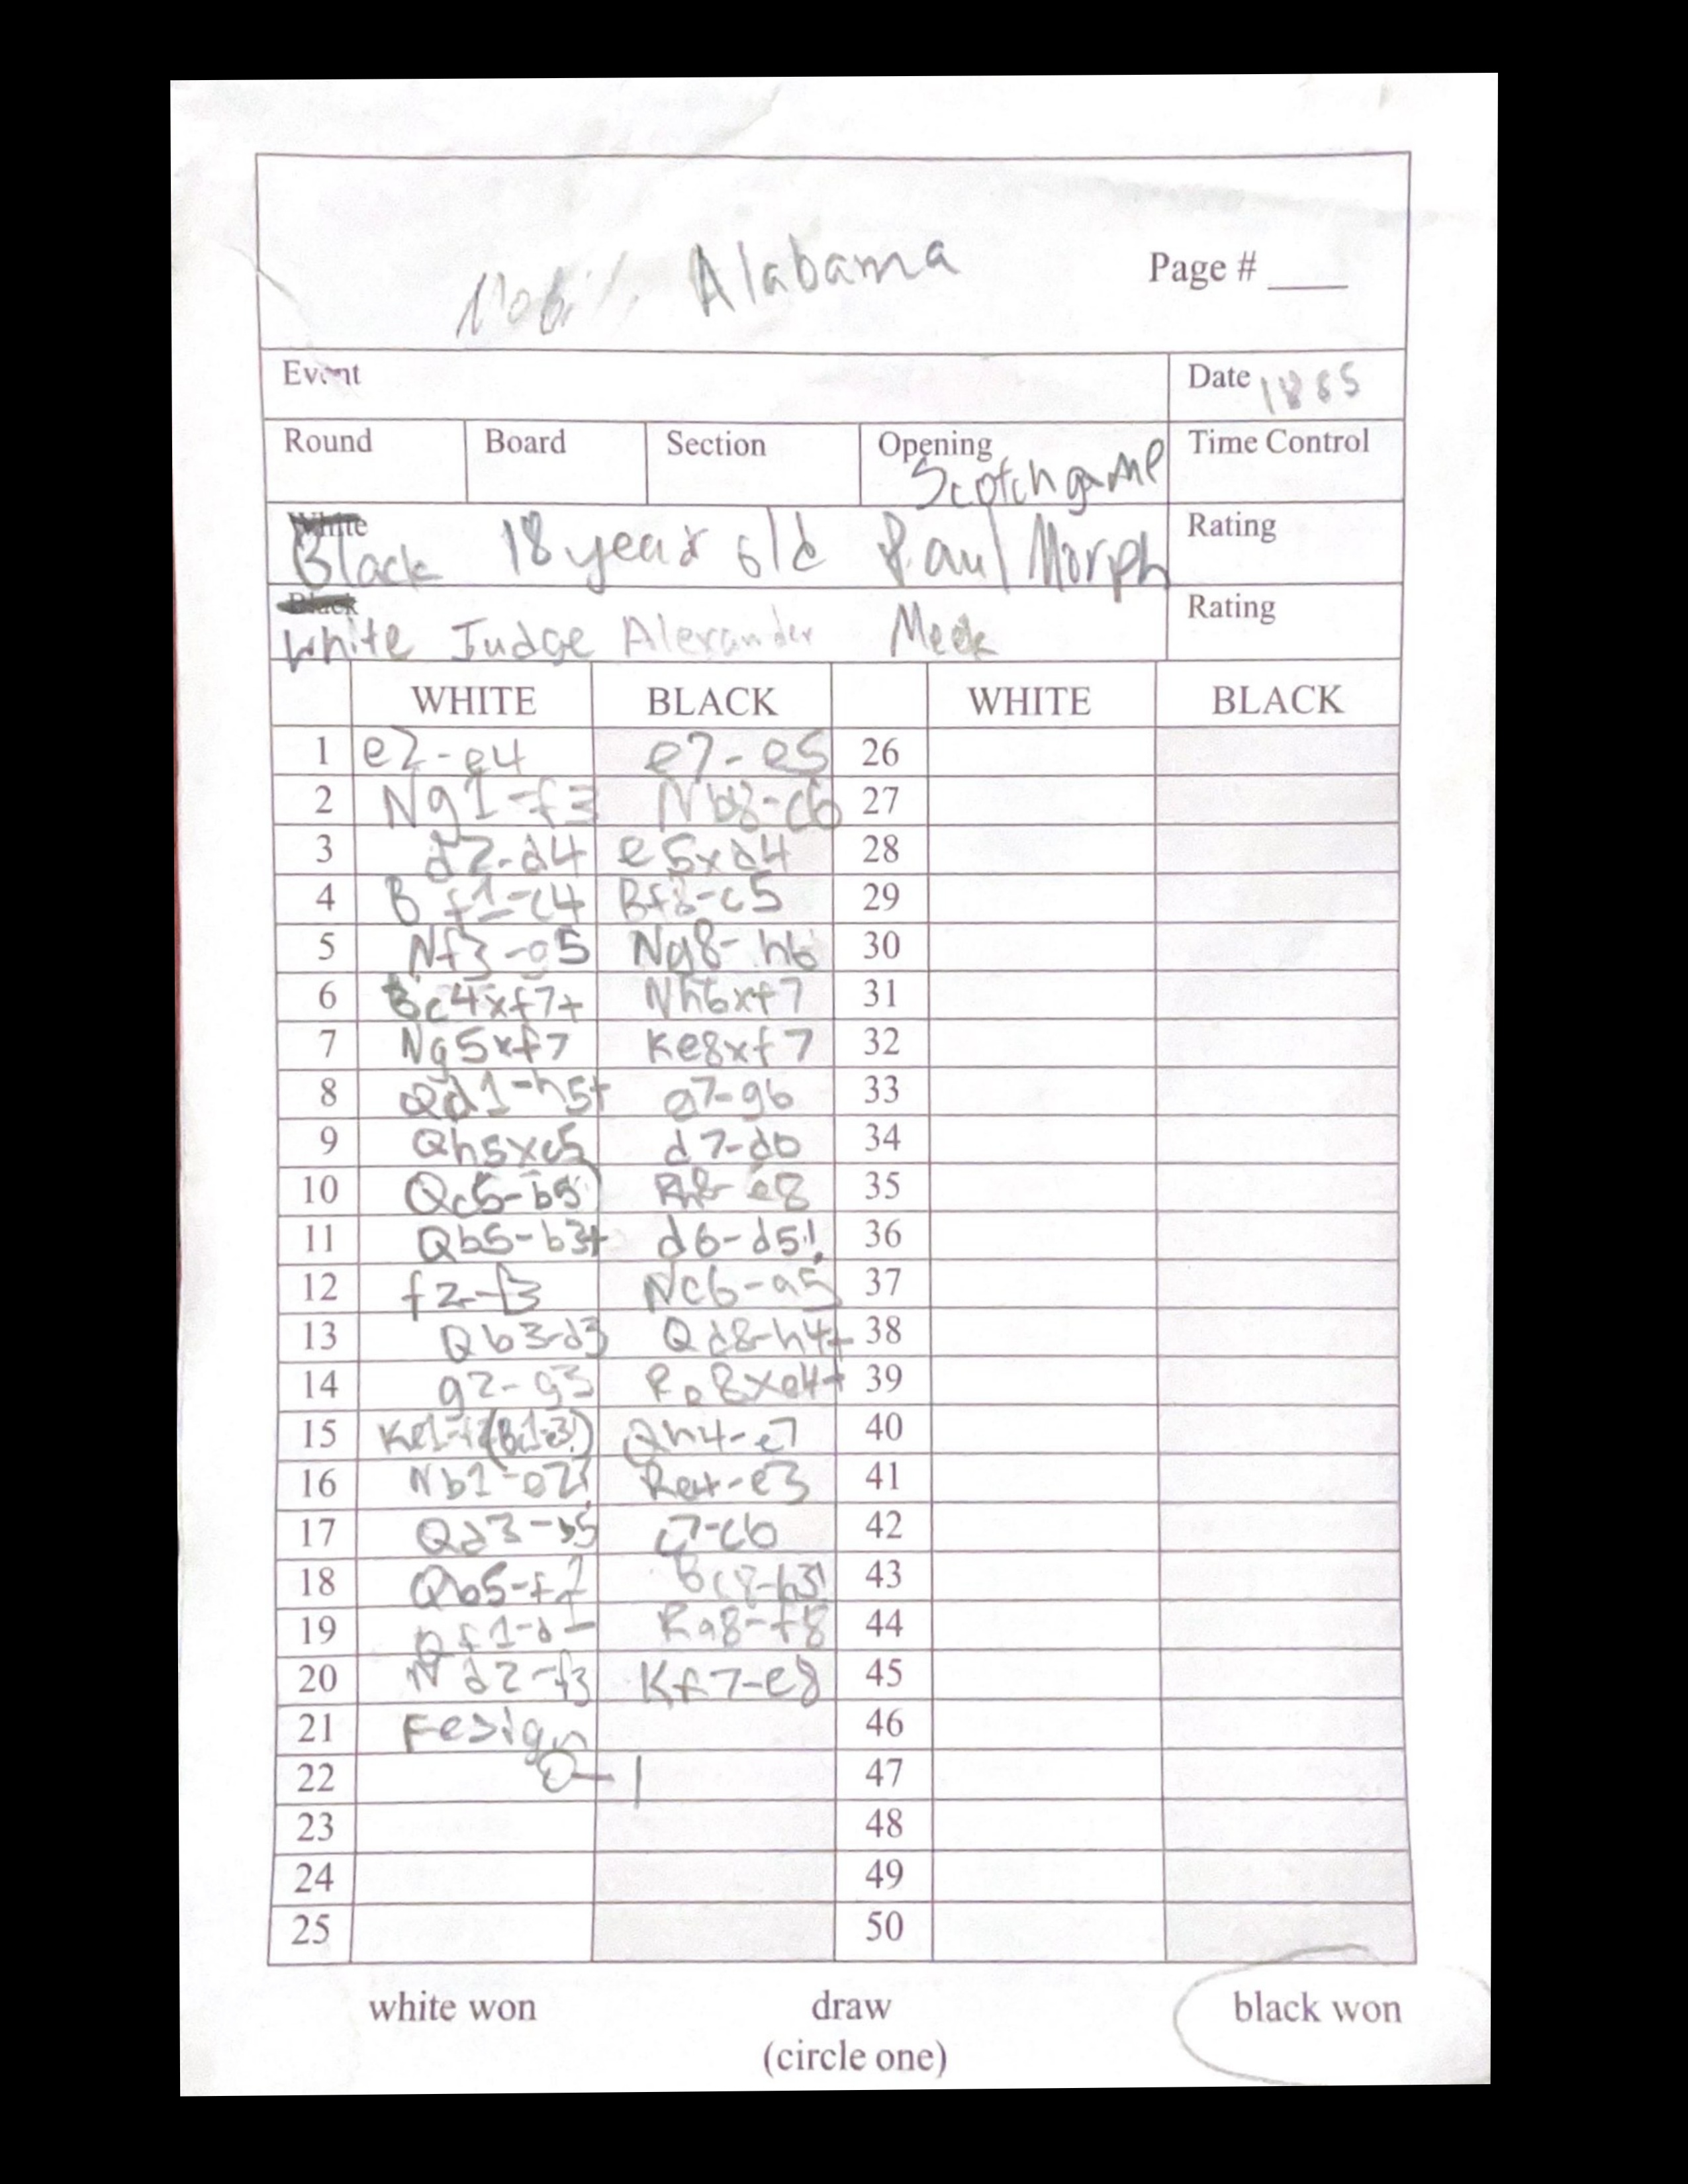 Alabama Page #
Event Date 1885
Round Board Section Opening Scotch game Time Control
White Black 18 year old Paul Morph Rating
Black White Judge Alexander Meek Rating
WHITE BLACK WHITE BLACK
1 e2-e4 e7-e5 26
2 Ng1-f3 Nb8-c6 27
3 d2-d4 e5xd4 28
4 Bf1-c4 Bf8-c5 29
5 Nf3-g5 Ng8-h6 30
6 Bc4xf7+ Nh6xf7 31
7 Ng5xf7 Ke8xf7 32
8 Qd1-h5+ g7-g6 33
9 Qh5xc5 d7-d6 34
10 Qc5-b5 Rh8-e8 35
11 Qb5-b3+ d6-d5! 36
12 f2-f3 Nc6-a5 37
13 Qb3-d3 Qd8-h4+ 38
14 g2-g3 Re8xe4+ 39
15 Qh4-e7 40
16 Re4-e3 41
17 Qd3-b5 c7-c6 42
18 Bc8-h3! 43
19 Qf1-d1 Ra8-f8 44
20 Nd2-f3 Kf7-e8 45
21 resign 46
22 0-1 47
23 48
24 49
25 50
white won draw black won
(circle one)